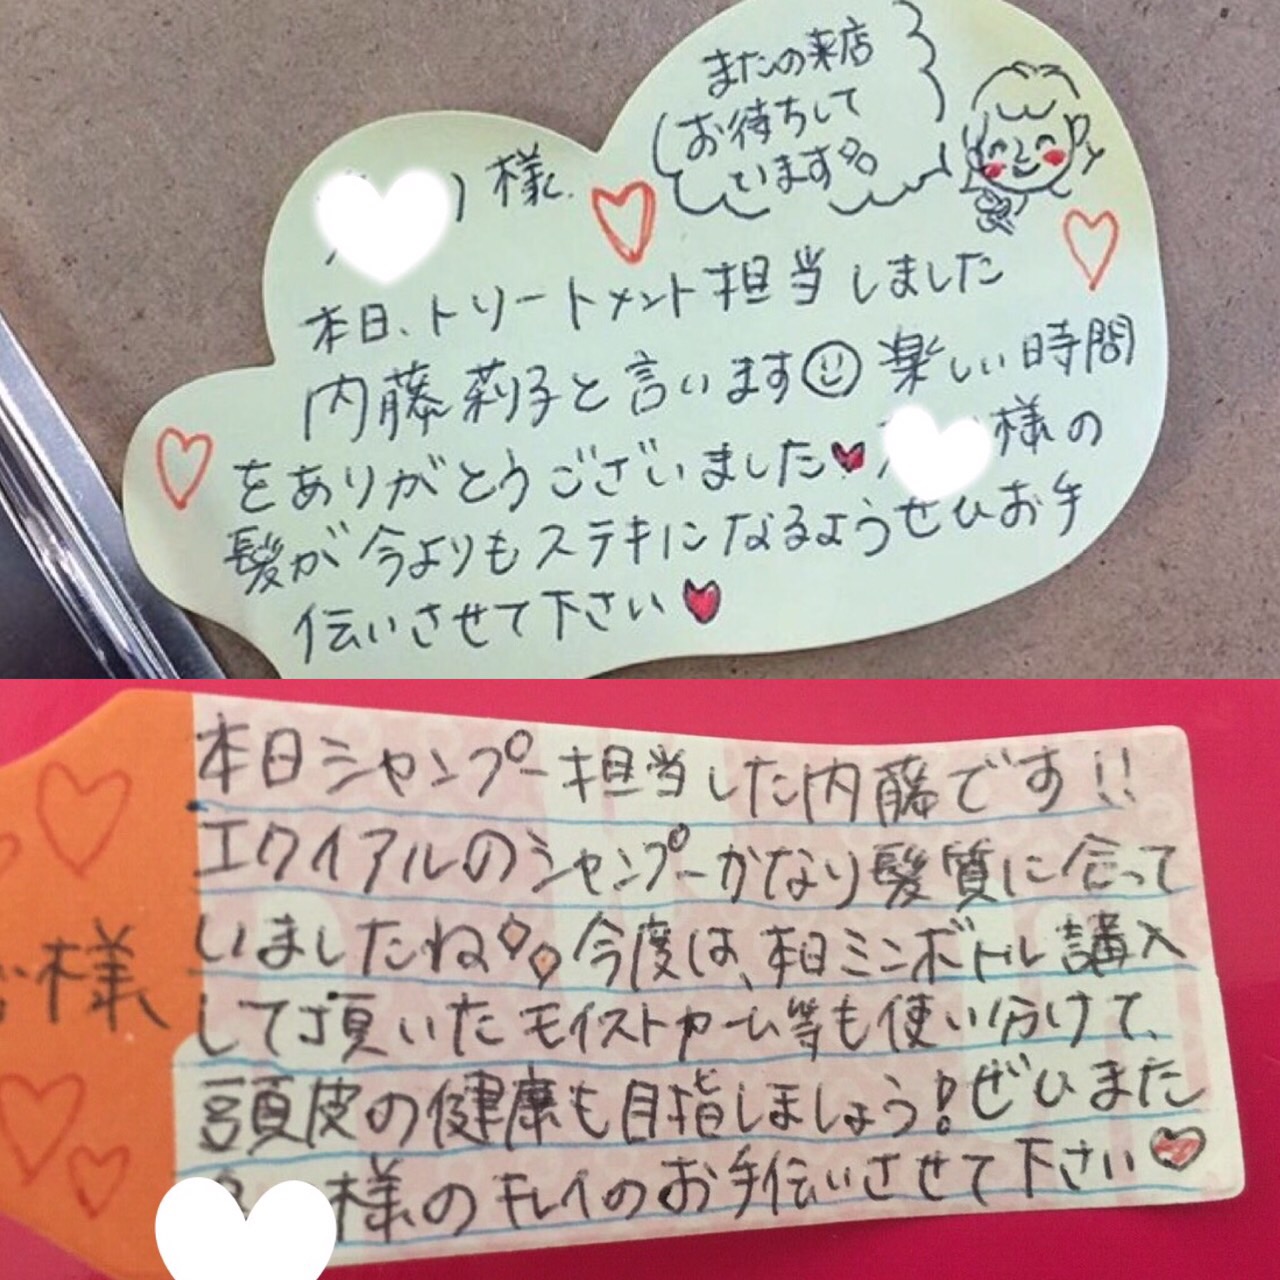 またの来店
お待ちして
います
様
本日、トリートメント担当しました
内藤莉子と言います 楽しい時間
をありがとうございました 様の
髪が今よりもステキになるようぜひお手
伝いさせて下さい
様
本日シャンプー担当した内藤です!!
エクイアルのシャンプーかなり髪質に合って
いましたね 今度は、本日ミニボトル購入
して頂いたモイストカーム等も使い分けて、
頭皮の健康も目指しましょう!ぜひまた
様のキレイのお手伝いさせて下さい